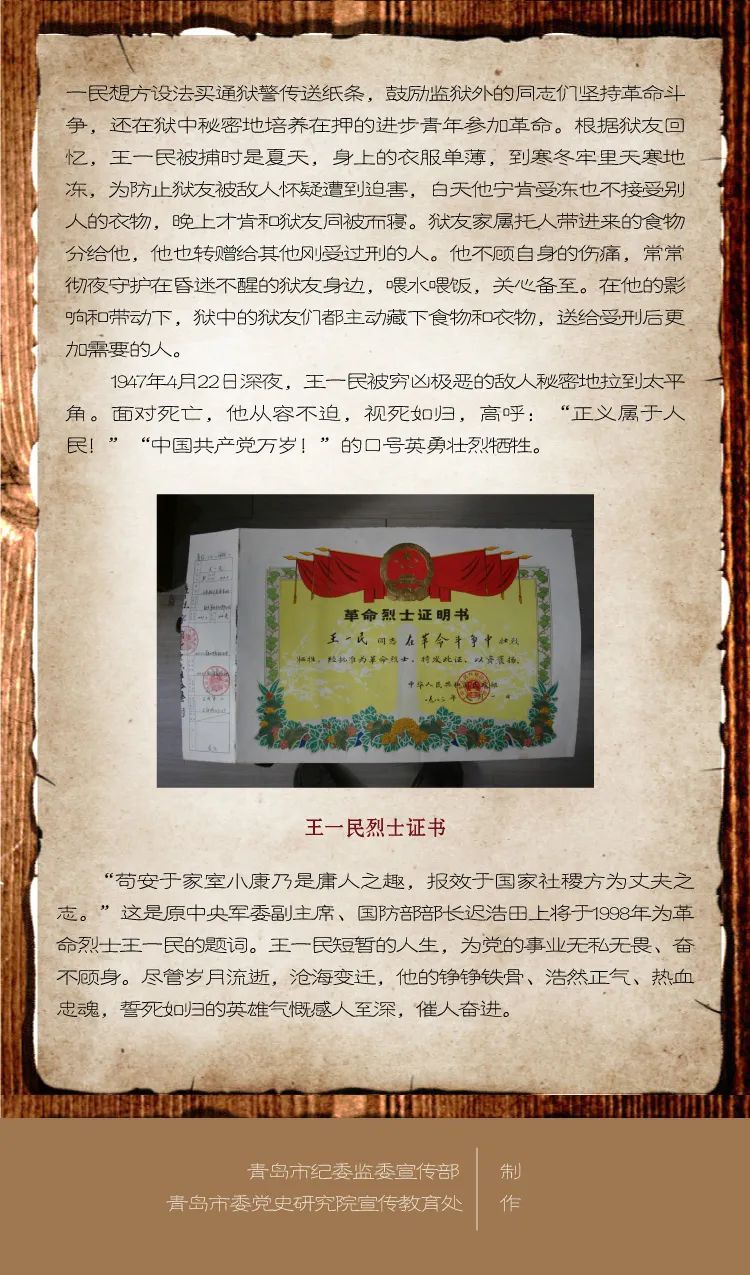 一民想方设法买通狱警传送纸条，鼓励监狱外的同志们坚持革命斗
争，还在狱中秘密地培养在押的进步青年参加革命。根据狱友回
忆，王一民被捕时是夏天，身上的衣服单薄，到寒冬牢里天寒地
冻，为防止狱友被敌人怀疑遭到迫害，白天他宁肯受冻也不接受别
人的衣物，晚上才肯和狱友同被而寝。狱友家属托人带进来的食物
分给他，他也转赠给其他刚受过刑的人。他不顾自身的伤痛，常常
彻夜守护在昏迷不醒的狱友身边，喂水喂饭，关心备至。在他的影
响和带动下，狱中的狱友们都主动藏下食物和衣物，送给受刑后更
加需要的人。
1947年4月22日深夜，王一民被穷凶极恶的敌人秘密地拉到太平
角。面对死亡，他从容不迫，视死如归，高呼：“正义属于人
民！”“中国共产党万岁！”的口号英勇壮烈牺牲。
革命烈士证明书
王一民 同志 在革命斗争中 壮烈
牺牲，经批准为革命烈士。特发此证，以资褒扬。
中华人民共和国民政部
王一民烈士证书
“苟安于家室小康乃是庸人之趣，报效于国家社稷方为丈夫之
志。”这是原中央军委副主席、国防部部长迟浩田上将于1998年为革
命烈士王一民的题词。王一民短暂的人生，为党的事业无私无畏、奋
不顾身。尽管岁月流逝，沧海变迁，他的铮铮铁骨、浩然正气、热血
忠魂，誓死如归的英雄气慨感人至深，催人奋进。
青岛市纪委监委宣传部 制
青岛市委党史研究院宣传教育处 作